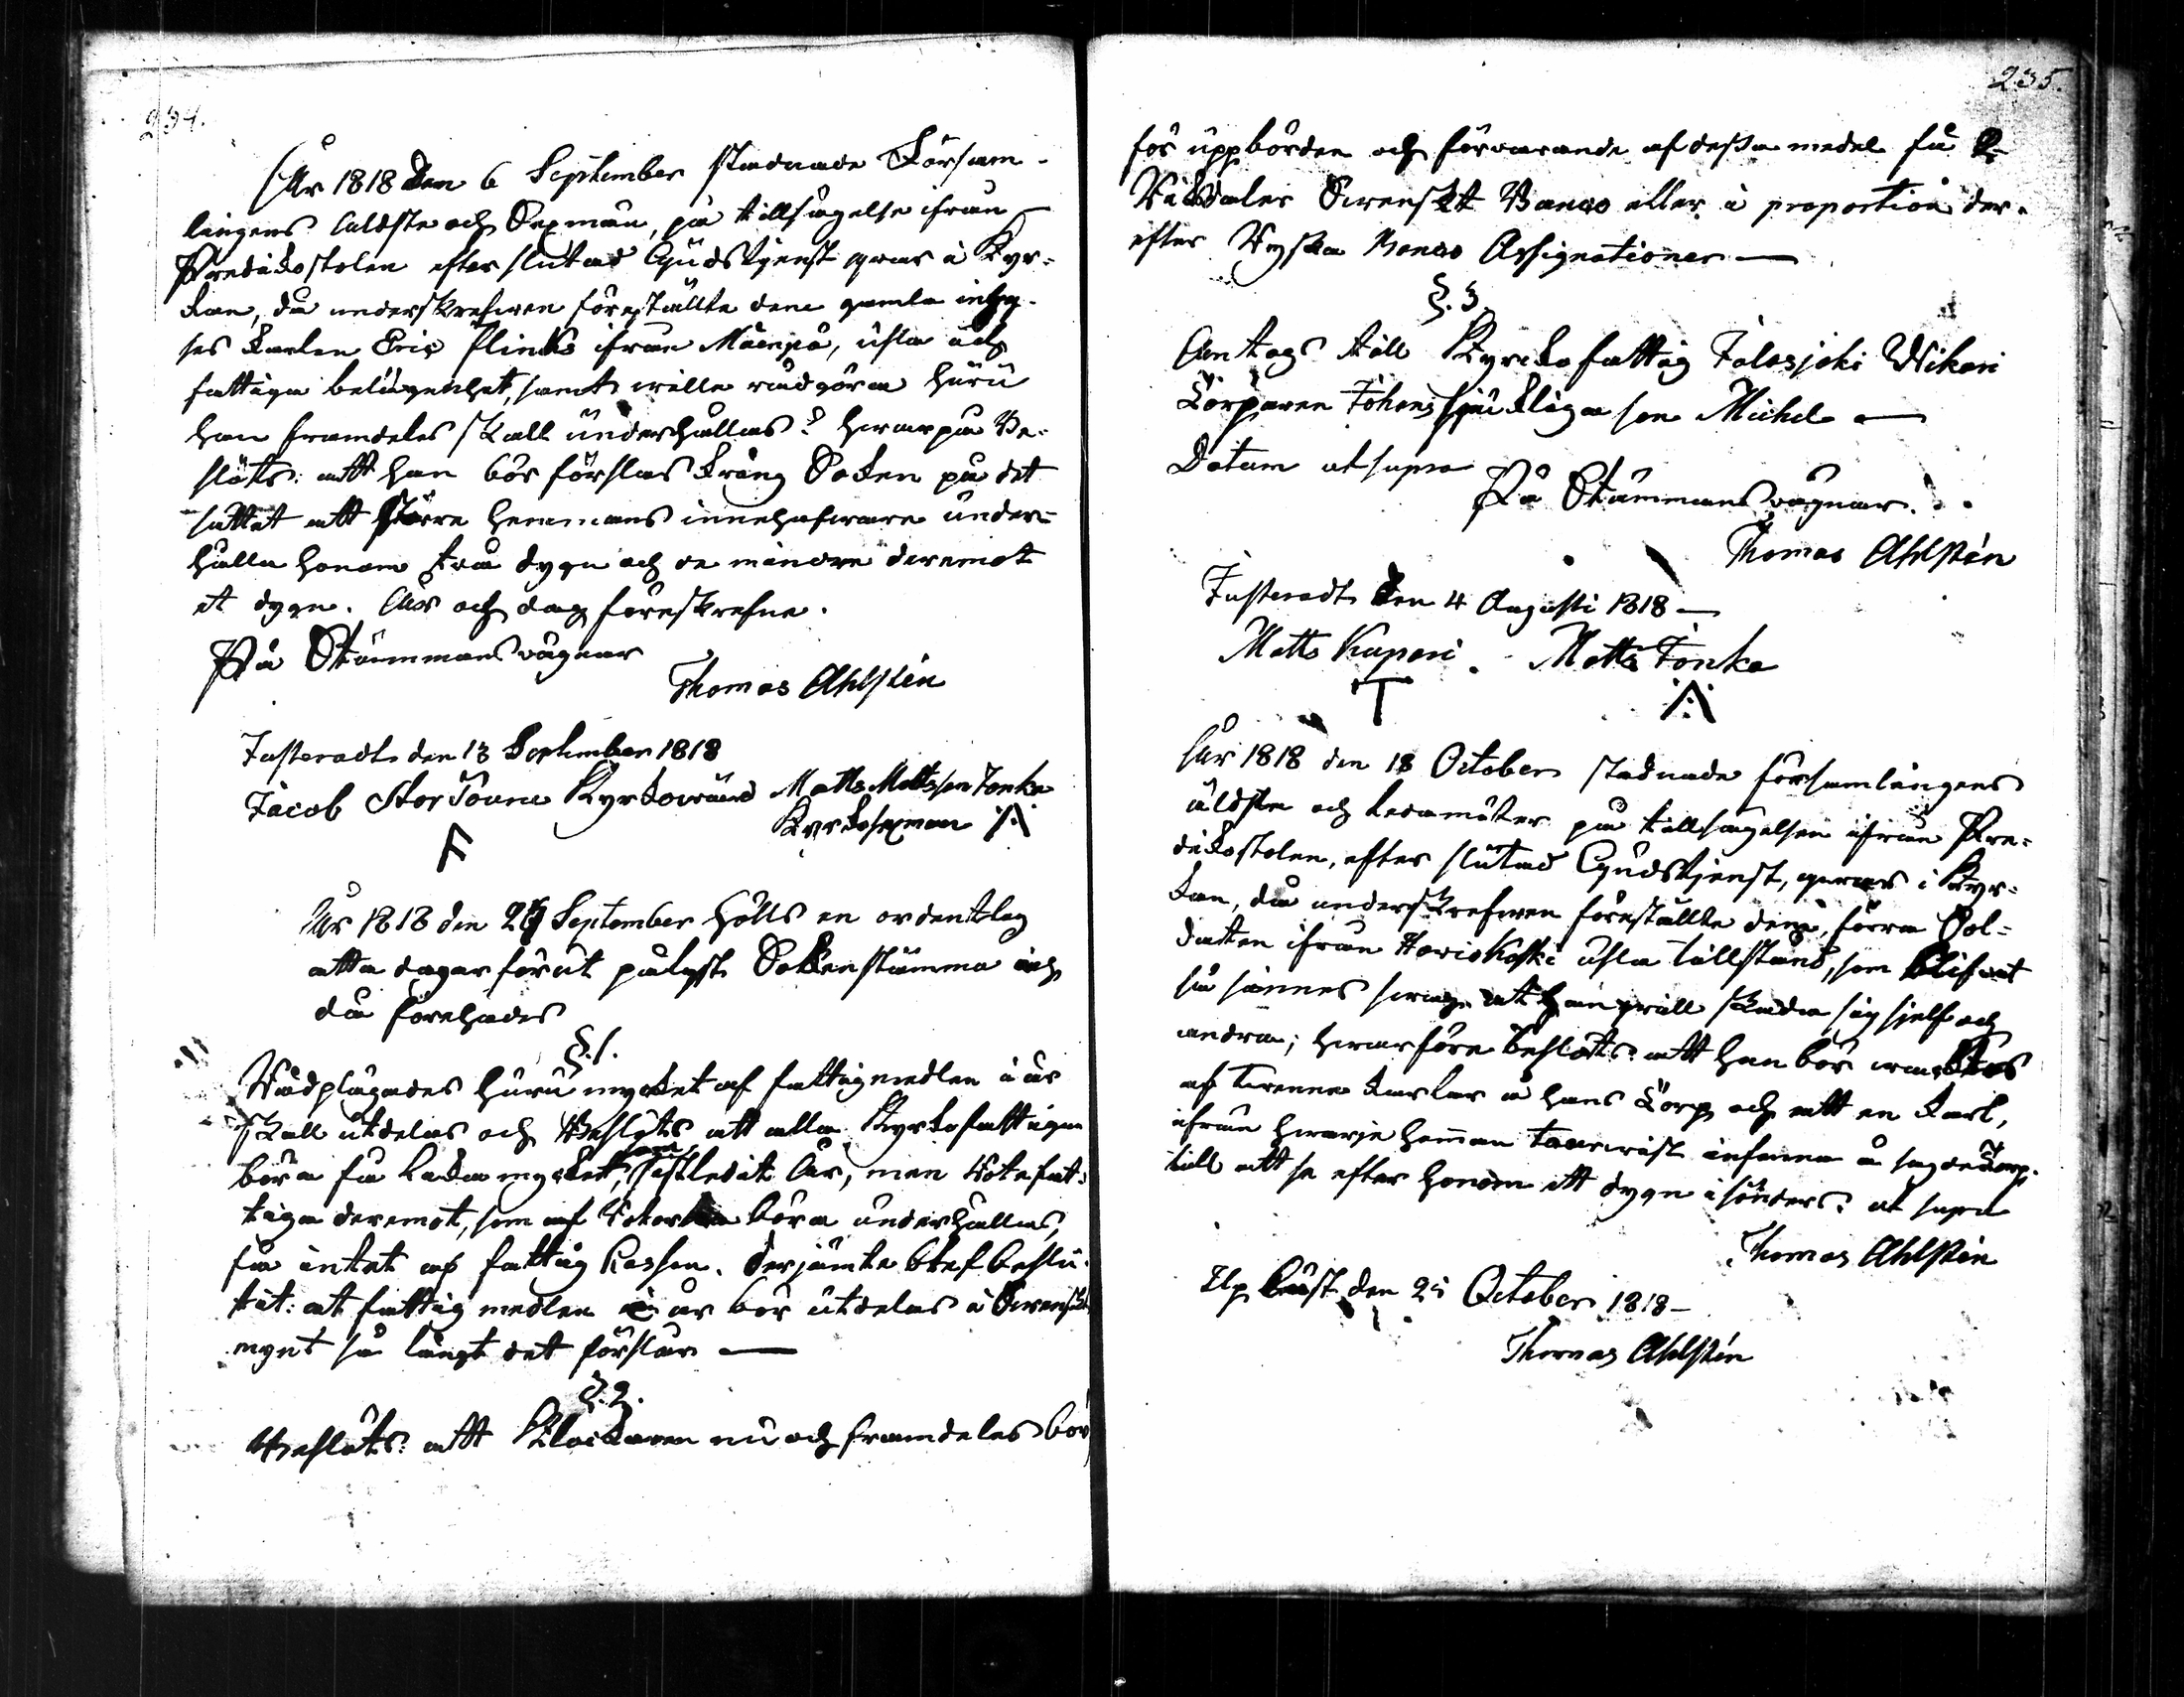 234.
År 1818 den 6 September stadnade Försam-
lingens äldste och Sexmän, på tillsägelse ifrån
Predikostolen efter slutad Gudstjenst qvar i Kyr-
kan, då underskrefwen förestállte den gamla inhy-
ses Karlen Eric Flinks ifrån Mäenpä, usla och
fattiga belägenhet, samt wille rådgöra huru
han framdeles skall underhållas? hwarpå Be-
slöts: att han bör förslas kring Socken på det
sättet att större hemmans innehafware under-
hålla honom två dygn och de mindre deremot
et dygn. År och dag föreskrefne.
På Stämmans vägnar
Thomas Ahlstén
Justeradt den 13 September 1818
Jacob StorToune Kyrkowärd Matts Mattsson Tonka
Kyrkosexman
År 1818 den 29 September hölls en ordentlig
åtta dagar förut pålyst Sockenstämma och
då förehades
§. 1.
Rådplägades huru mycket af fattigmedlen i år
skall utdelas och Beslöts att alla Kyrkofattiga
böra få lika mycket, som sistledit År, men Rotefat-
tiga deremot, som af Rotorne böra underhållas,
få intet af fattig Kassen. Derjemte blef beslu-
tit: at fattig medlen i år bör utdelas i Swenskt
mynt så långt det förslår —
§. 2.
Beslöts: att Klockaren nu och framdeles bör
235.
för uppbörden och förvarande af dessa medel få 2
Riksdaler Swenskt Banco eller i proportion der-
efter Ryska Banco Assignationer —
§. 3
Antogs till Kyrckofattig Jalasjoki Wikari
Torparen Johans sjukliga son Michel —
Datum ut supra
På Stämmans vägnar.
Thomas Ahlstén
Justeradt den 4 Augusti 1818 —
Matts Kupari. Matts Tonka
År 1818 den 18 October stadnade församlingens
äldste och ledamöter på tillsägelsen ifrån Pre-
dikostolen, efter slutad Gudstjenst, qvar i Kyr-
kan, då underskrefwen förestállte den förra Sol-
daten ifrån Hariokoski usla tillstånd, som blifwit
så sinnes swag at han will skada sig sjelf och
andra; hwarföre beslöts: att han bör waktas
af twenne karlar i hans Torp och att en karl,
ifrån hwarje hemman turwist infinna å sagde Torp.
till att se efter honom ett dygn i sönder. ut supra
Thomas Ahlstén
Upläst den 25 October 1818 —
Thomas Ahlstén